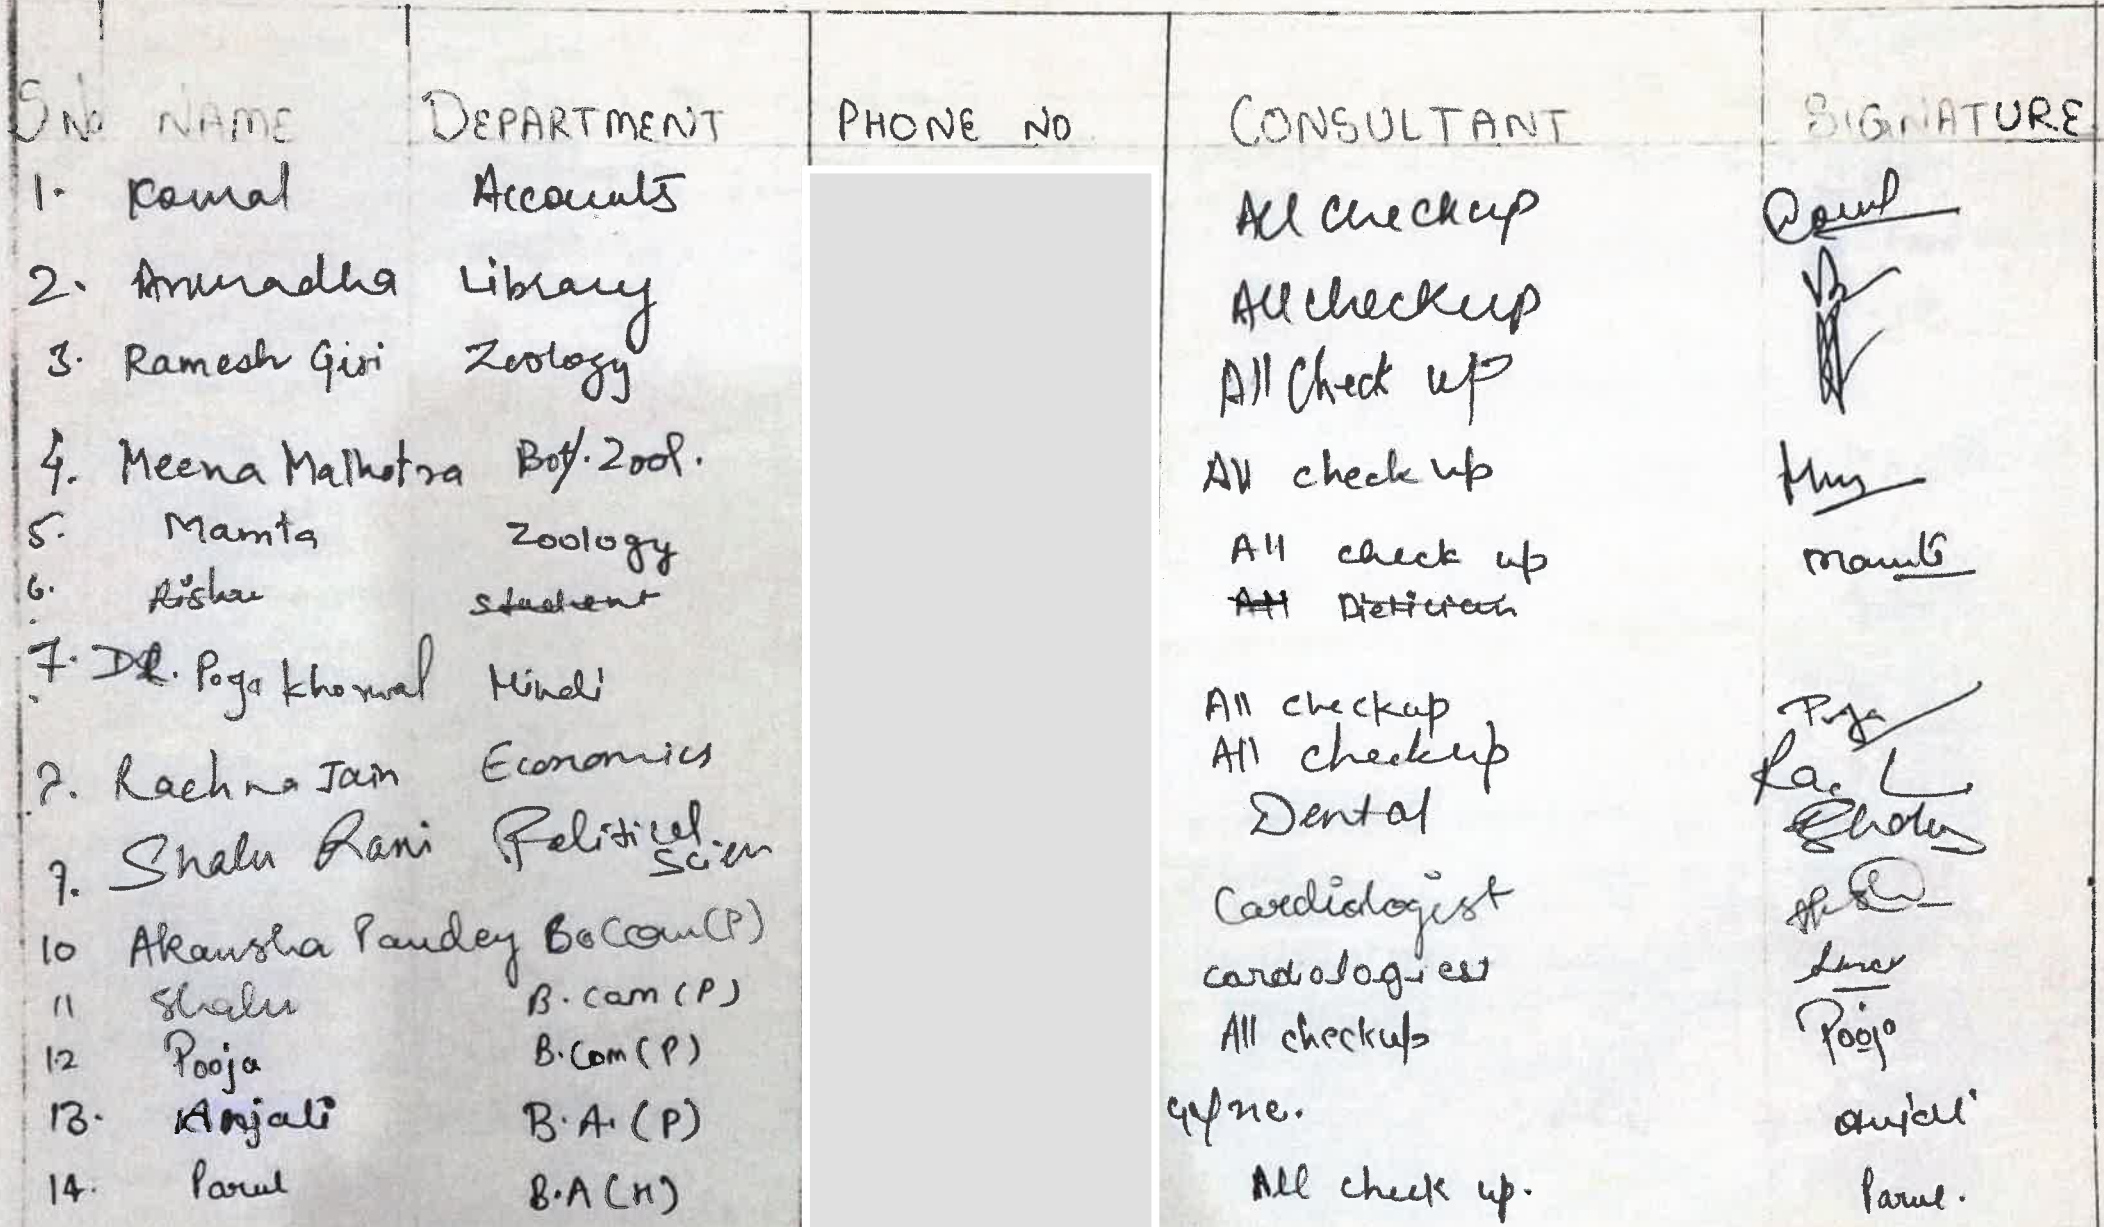 S.No. NAME DEPARTMENT PHONE NO CONSULTANT SIGNATURE
1. Komal Accounts All checkup
2. Anuradha Library All checkup
3. Ramesh Giri Zoology All Check up
4. Meena Malhotra Bot/.Zool. All check up
5. Mamta Zoology All check up Mamta
6. Rishu student All Dietician
7. DR. Pooja Khorwal Hindi All checkup Pooja
8. Rachna Jain Economics All checkup
9. Shalu Rani Political Scien Dental
10 Akansha Pandey B.Com(P) Cardiologist
11 Shalu B.com (P) cardologist
12 Pooja B.Com (P) All checkup Pooja
13. Anjali B.A. (P) Gyne. Anjali
14. Parul B.A (H) All check up. Parul.